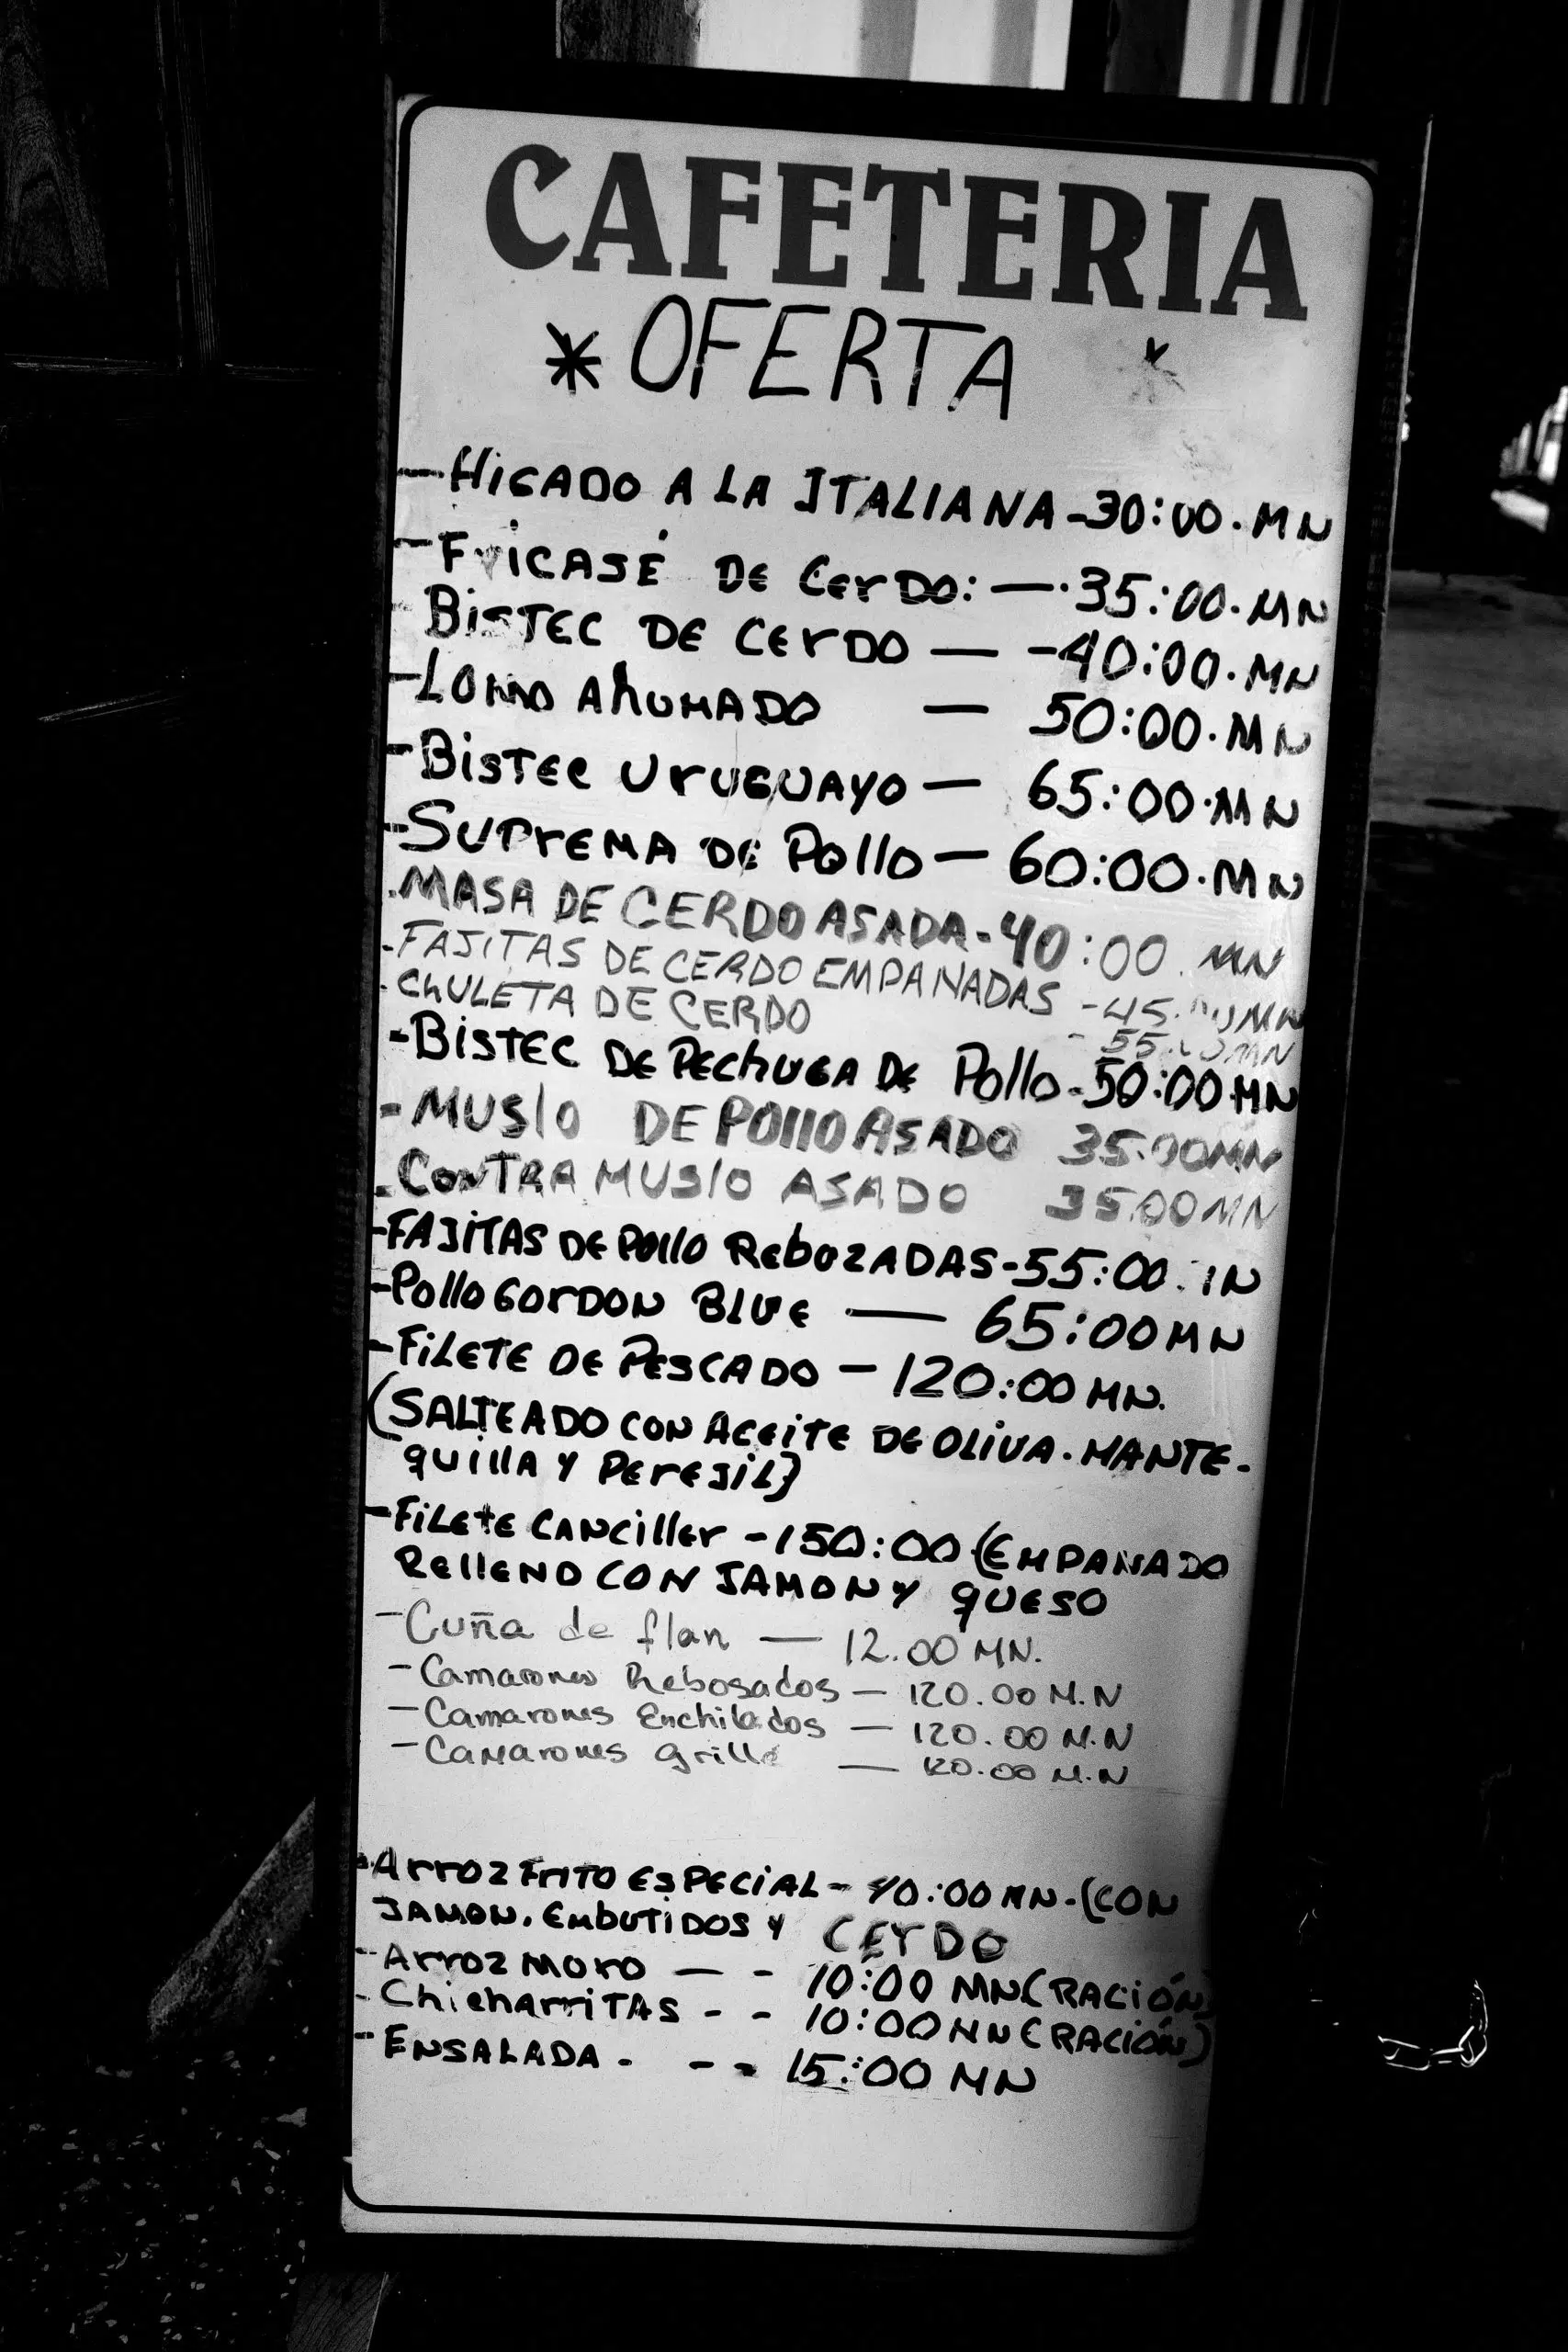 CAFETERIA
* OFERTA *
- HIGADO A LA ITALIANA - 30:00. MN
- FRICASÉ DE CerDO: — . 35:00. MN
- BISTEC DE CerDO — - 40:00. MN
- LOMO AhUMADO — 50:00. MN
- BISTEC UrUGUAYO — 65:00. MN
- SUPrEMA DE Pollo — 60:00. MN
- MASA DE CERDO ASADA - 40:00. MN
- FAJITAS DE CERDO EMPANADAS - 45.00MN
- ChULETA DE CERDO - 55.00MN
- BISTEC DE PEChUGA DE Pollo - 50:00 MN
- MUSlO DE POllO ASADO 35.00MN
- CONTRA MUSlO ASADO 35.00MN
- FAJITAS DE POllO RebOZADAS - 55:00. IN
- Pollo GOrDON BLUE — 65:00MN
- FILETE DE PESCADO — 120:00 MN.
(SALTEADO CON ACEITE DE OLIVA. MANTE-
quillA Y PErEJIL)
- FILEtE CANCIllEr - 150:00 (EMPANADO
RELLENO CON JAMON Y QUESO
- Cuña de flan — 12.00 MN.
- Camarones Rebosados — 120.00 M.N
- Camarones Enchilados — 120.00 M.N
- Camarones grille — 120.00 M.N
- ArrOZ FrITO ESPECIAL - 40:00 MN - (CON
JAMON. EMbUTIDOS Y CErDO
- ArrOZ MOrO — - 10:00 MN (RACIÓN)
- ChicharriTAS - - 10:00 MN (RACIÓN)
- ENSALADA. - - 15:00 MN